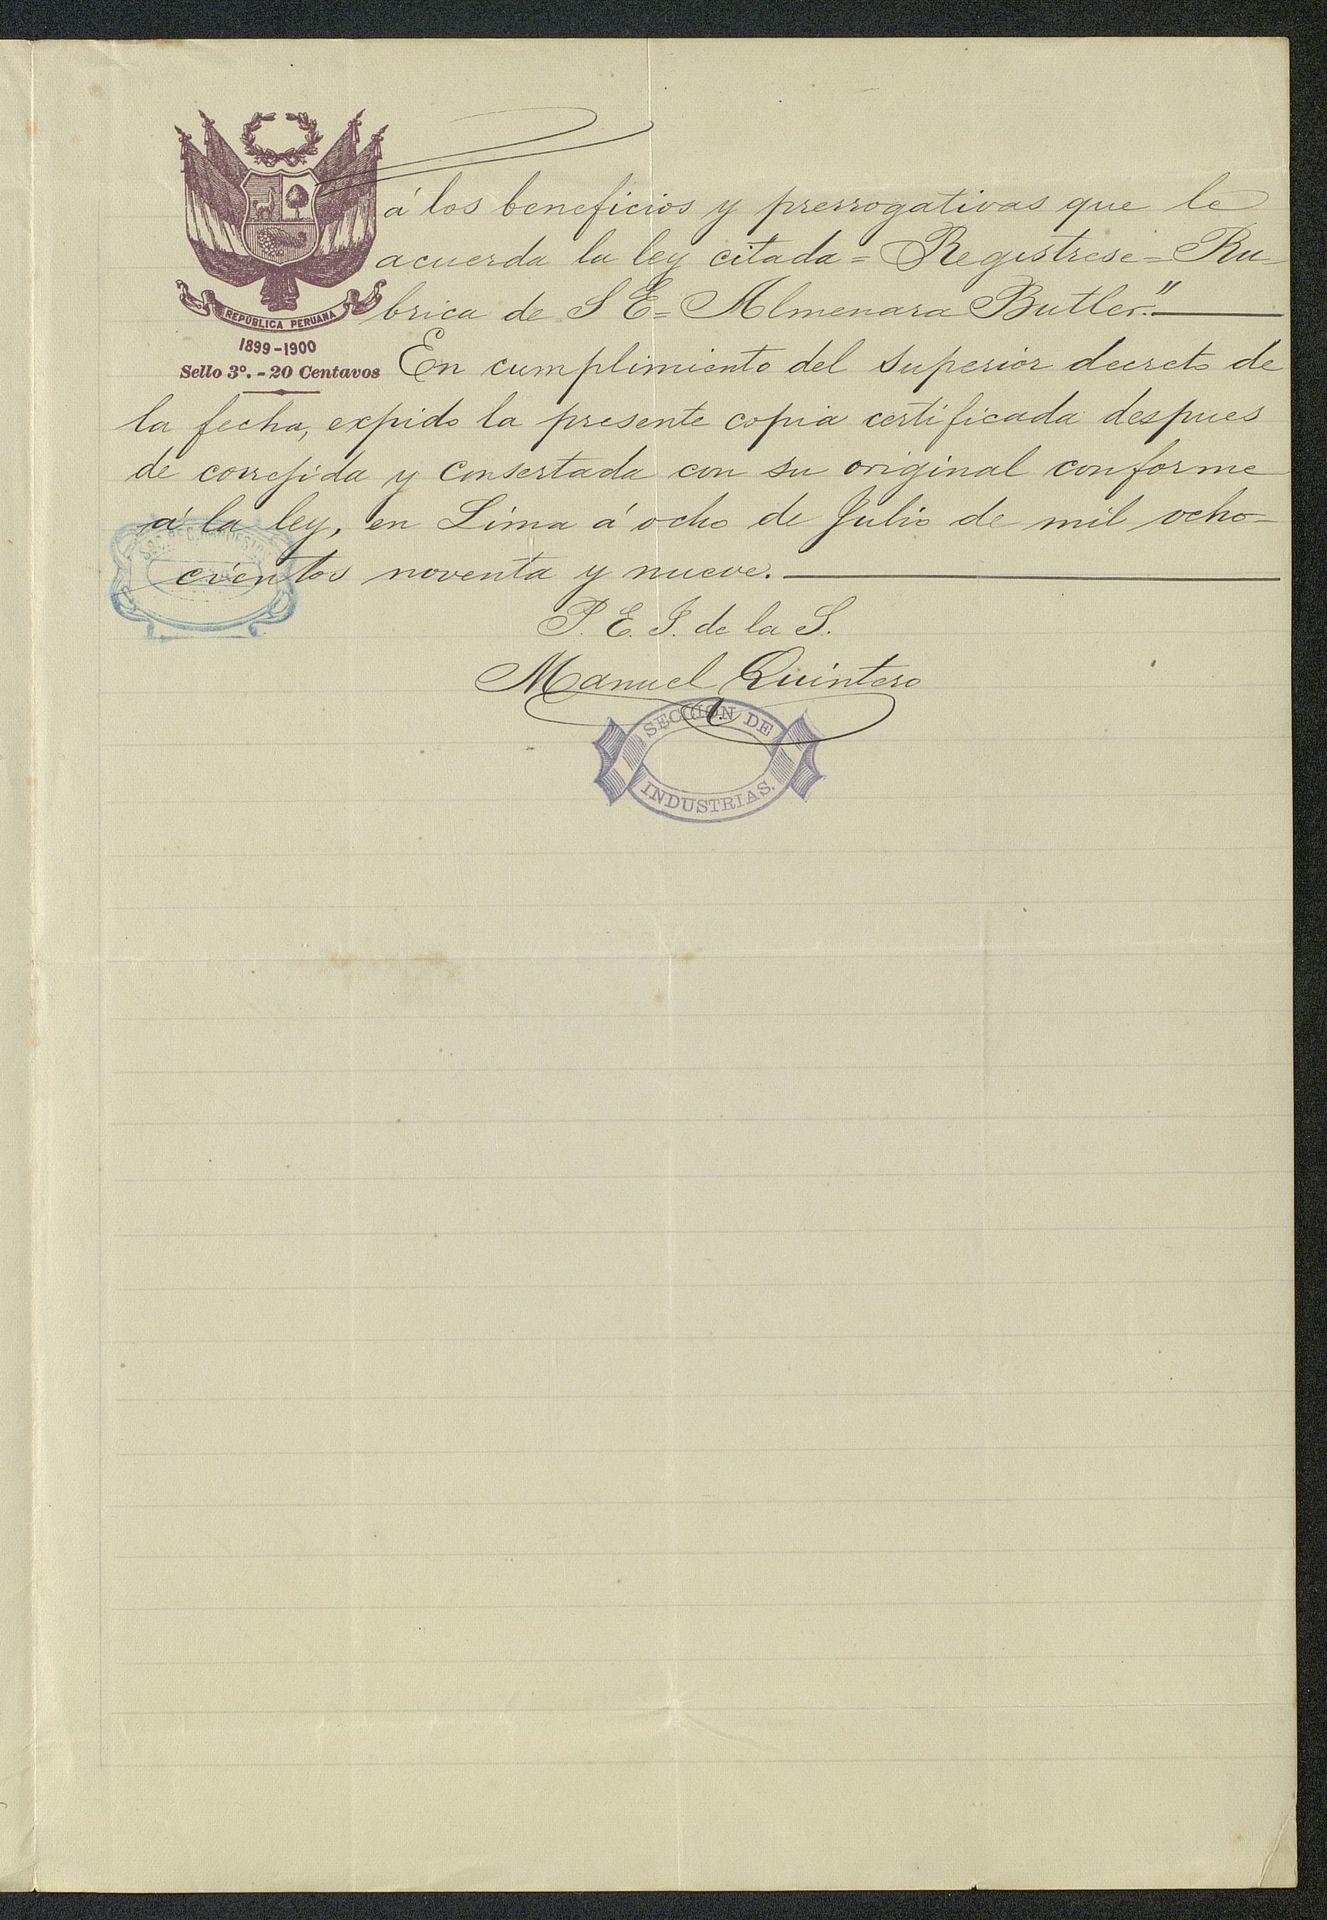 á los beneficios y prerrogativas que le
acuerda la ley citada = Registrese = Ru-
brica de S E = Almenara Butler".
REPÚBLICA PERUANA
1899-1900
Sello 3º. - 20 Centavos
En cumplimiento del superior decreto de
la fecha, expido la presente copia certificada despues
de corregida y consertada con su original conforme
á la ley, en Lima á ocho de Julio de mil ocho-
cientos noventa y nueve.
P. E. J. de la S.
Manuel Quintero
SECCION DE
INDUSTRIAS.